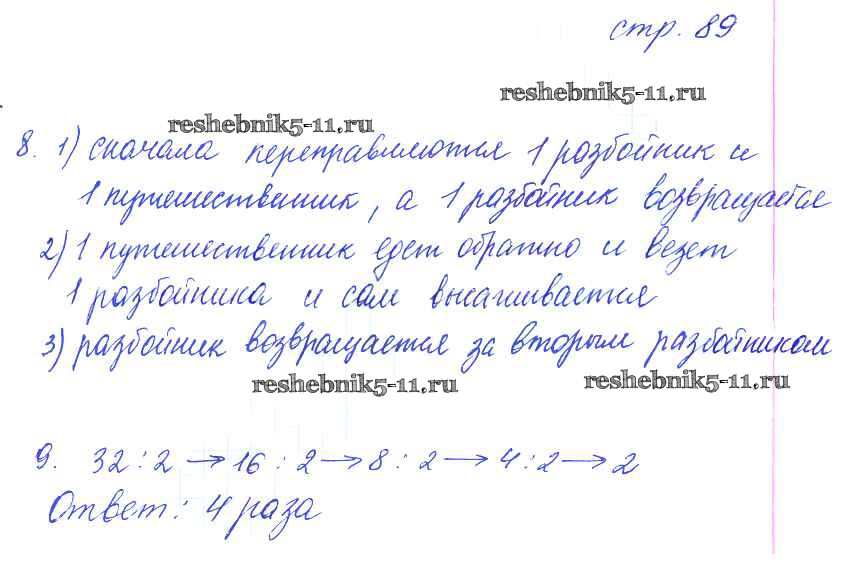 стр. 89
reshebnik5-11.ru
reshebnik5-11.ru
8. 1) сначала переправляются 1 разбойник и
1 путешественник, а 1 разбойник возвращается
2) 1 путешественник едет обратно и везет
1 разбойника и сам высаживается
3) разбойник возвращается за вторым разбойником
reshebnik5-11.ru
reshebnik5-11.ru
9. 32 : 2 → 16 : 2 → 8 : 2 → 4 : 2 → 2
Ответ: 4 раза